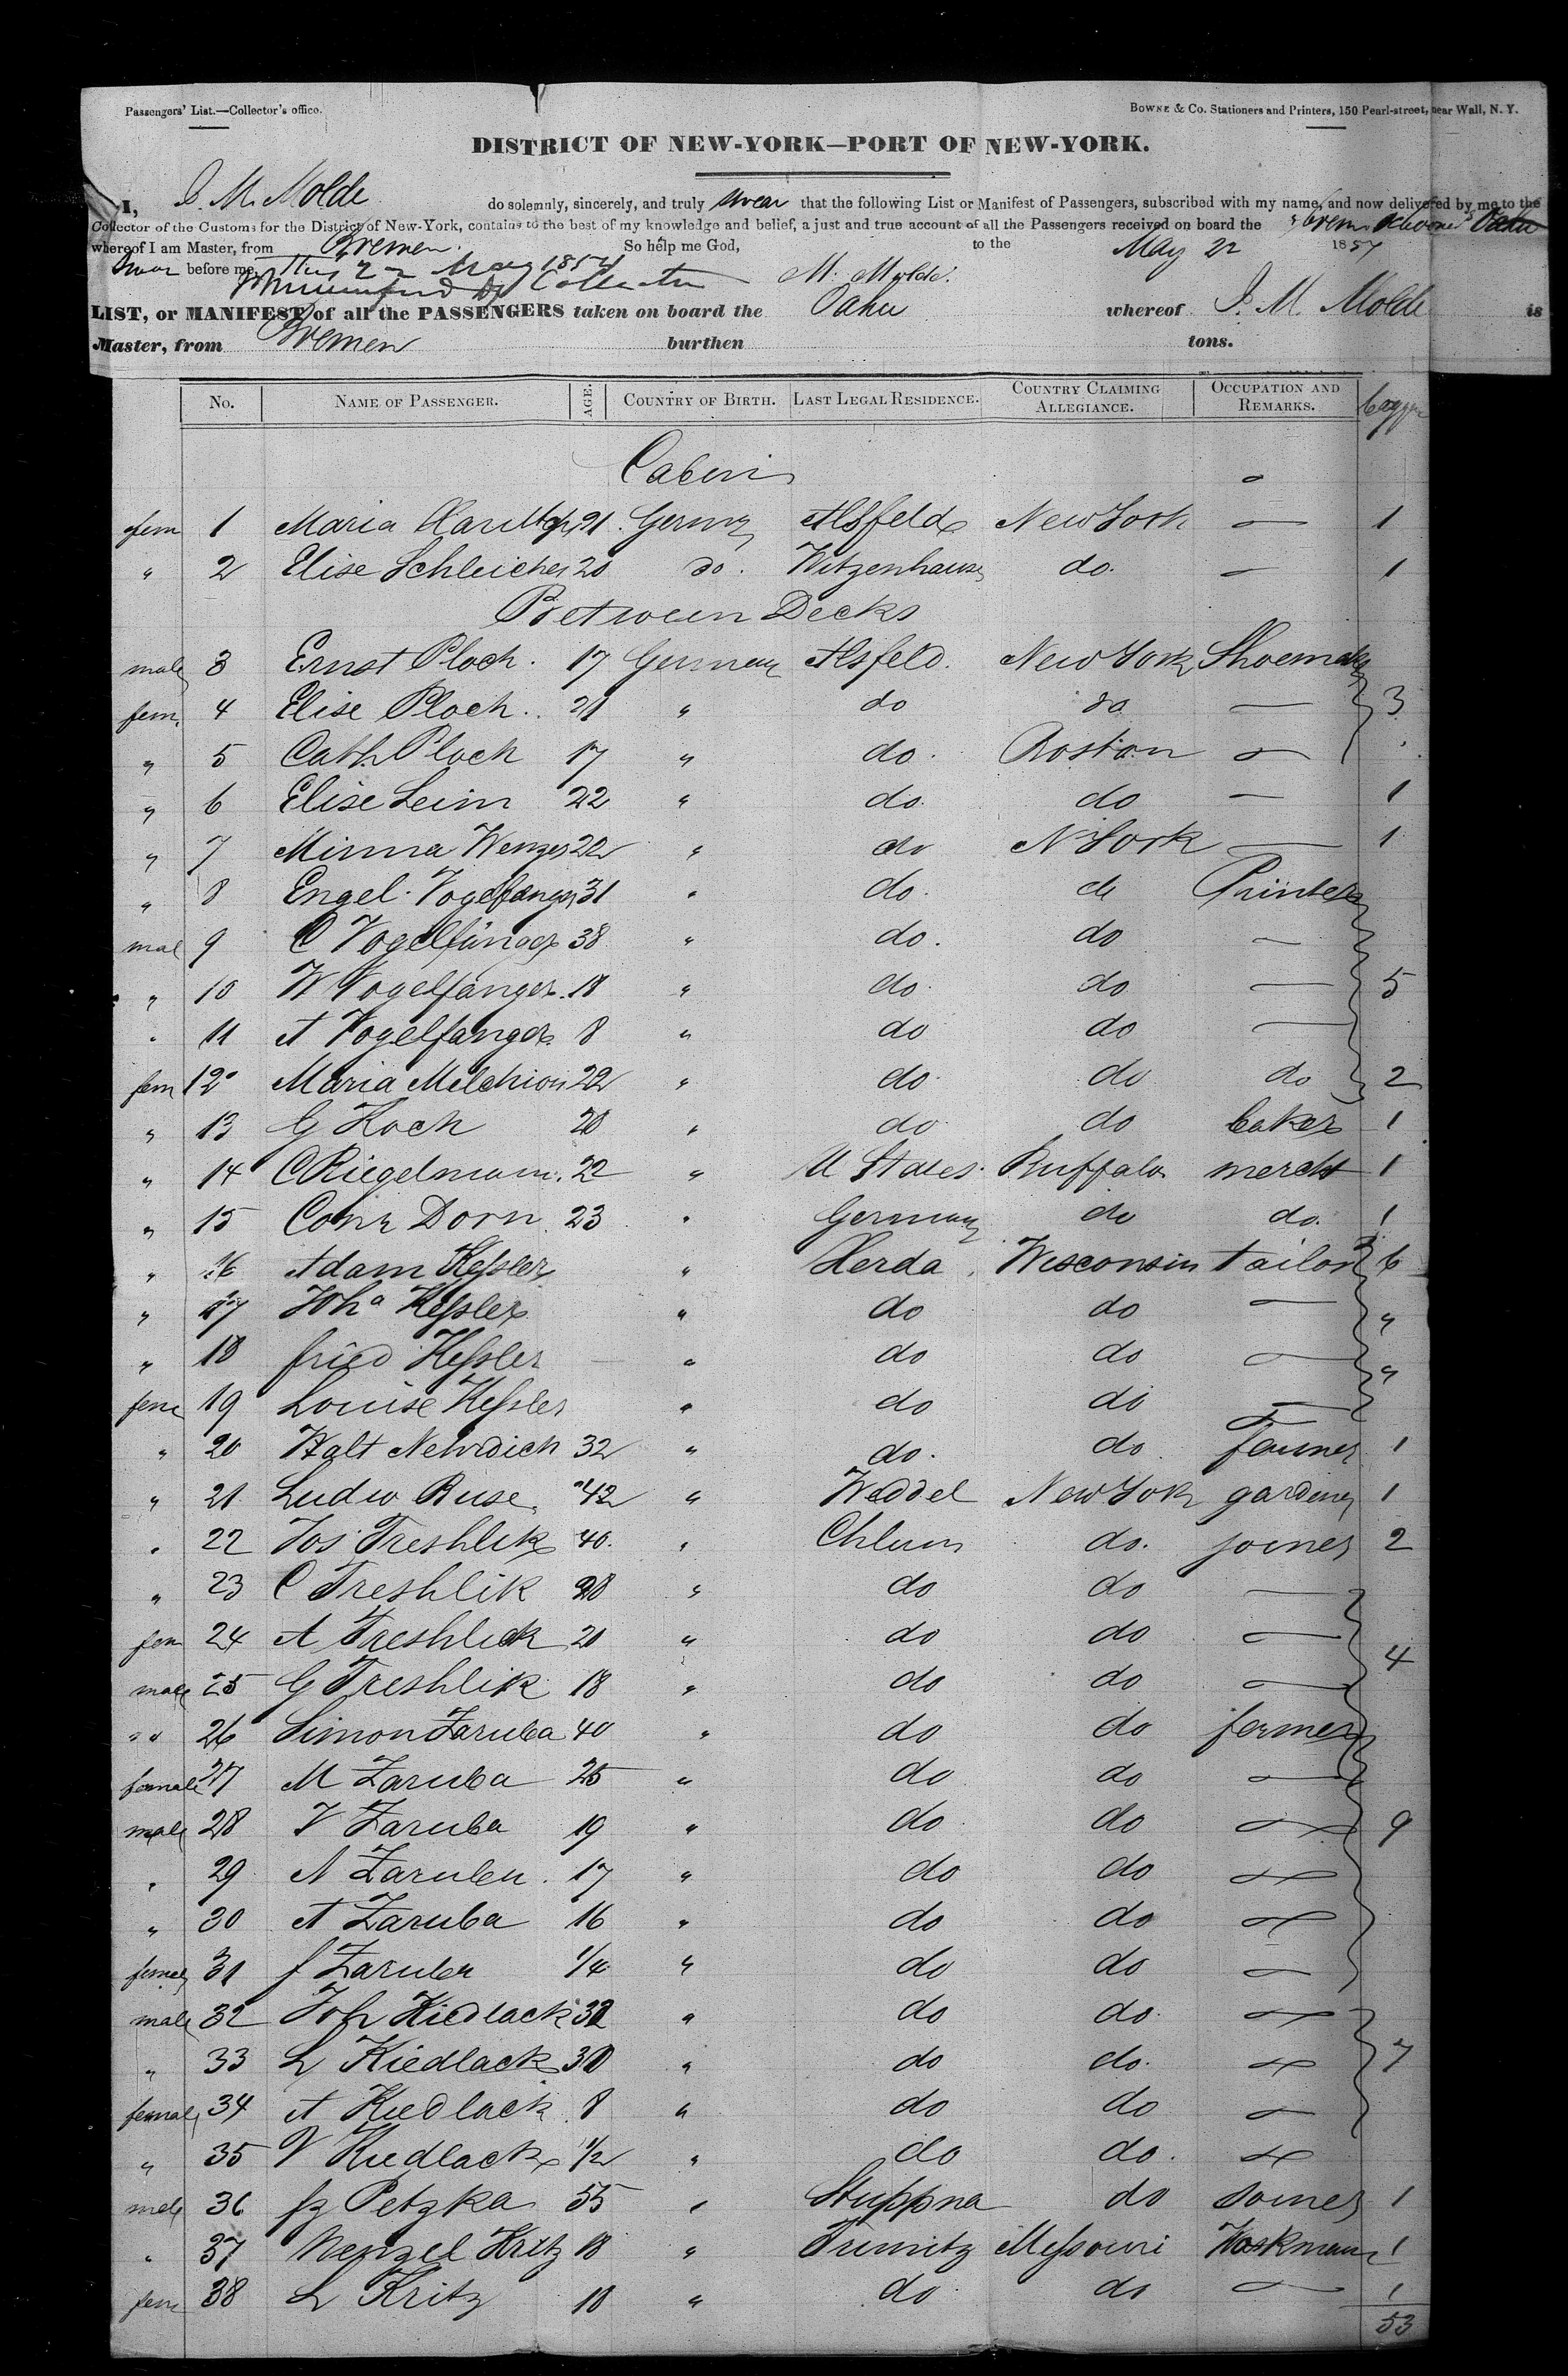 Passengers' List.—Collector's office.
BOWNE & Co. Stationers and Printers, 150 Pearl-street, near Wall, N. Y.
DISTRICT OF NEW-YORK—PORT OF NEW-YORK.
I, J. M. Molde do solemnly, sincerely, and truly swear that the following List or Manifest of Passengers, subscribed with my name, and now delivered by me to the
Collector of the Customs for the District of New-York, contains to the best of my knowledge and belief, a just and true account of all the Passengers received on board the Brem schooner Oahu
whereof I am Master, from Bremen. So help me God, to the May 22 1854
Swor before me, this 22 May 1854 M. Molde.
Dy Collector
LIST, or MANIFEST of all the PASSENGERS taken on board the Oahu whereof J. M. Molde is
Master, from Bremen burthen tons.
No. NAME OF PASSENGER. AGE. COUNTRY OF BIRTH. LAST LEGAL RESIDENCE. COUNTRY CLAIMING ALLEGIANCE. OCCUPATION AND REMARKS. bagage
Cabin
fem 1 Maria 21 Germy Alsfeld New York — 1
" 2 Elise Schleicher 20 do. Witzenhausen do. — 1
Between Decks
male 3 Ernst Ploch. 17 Germany Alsfeld. New York Shoemaker
fem. 4 Elise Ploch. 21 " do do — 3
" 5 Cath Ploch 17 " do. Boston —
" 6 Elise Leim 22 " do. do — 1
" 7 Minna Wenzer 22 " do N York — 1
" 8 Engel. Vogelfanger 31 " do. do Printer
mal 9 C Vogelfänger 38 " do. do —
" 10 W Vogelfanger. 18 " do. do — 5
" 11 A Vogelfanger 8 " do do —
fem 12 Maria Melchior 22 " do do do 2
" 13 G Koch 20 " do do baker 1
" 14 C Riegelmann. 22 " U States. Buffalo mercht 1
" 15 Conr Dorn 23 " Germany do do. 1
" 16 Adam Kessler " Herda Wisconsin tailor 6
" 17 Joha Kessler " do do — "
" 18 fried Kessler — " do do — "
fem 19 Louise Kessler " do do —
" 20 Walt Nehrdich 32 " do. do farmer 1
" 21 Ludw Ruse 42 " Weddel New York gardener 1
" 22 Jos Treshlik 40. " Chlum do. joiner 2
" 23 C Treshlik 28 " do do —
fem 24 A Treshlick 20 " do do —
male 25 G Treshlik 18 " do do — 4
" " 26 Simon Zaruba 40 " do do farmer
female 27 M Zaruba 25 " do do —
male 28 V Zaruba 19 " do do — 9
" 29 N Zaruba. 17 " do do —
" 30 A Zaruba 16 " do do —
female 31 f Zaruba 1/4 " do do —
male 32 Joh Kiedlack 32 " do do. —
" 33 L Kiedlack 30 " do do. — 7
female 34 A Kiedlack 8 " do do —
" 35 V Kiedlack 1/2 " do do. —
male 36 fz Petzka 55 " Stuppna do Joiner 1
" 37 Wenzel Kritz 18 " Trimitz Messouri Workman 1
fem 38 L Kritz 18 " do do — 1
53